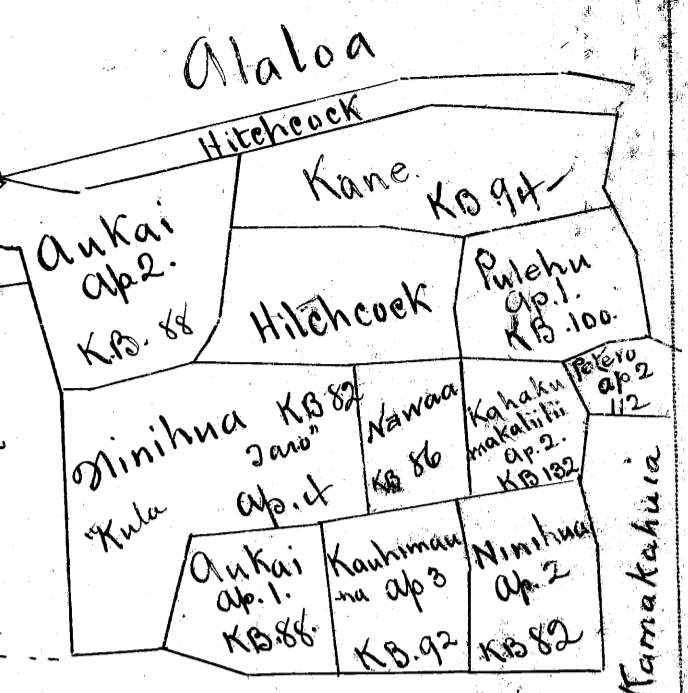 Alaloa
Hitchcock
Kane
KB 94
Aukai
ap. 2.
K.B. 88
Hitchcock
Pulehu
ap. 1.
KB. 100.
ap 2
112
Ninihua KB 82
"Kula Taro"
ap. 4
Nawaa
KB 86
Kahaku
makaliilii
ap. 2.
KB 132
Aukai
ap. 1.
KB. 88.
Kauhimau
na ap 3
KB. 92
Ninihua
ap. 2
KB 82
Kamakahuia